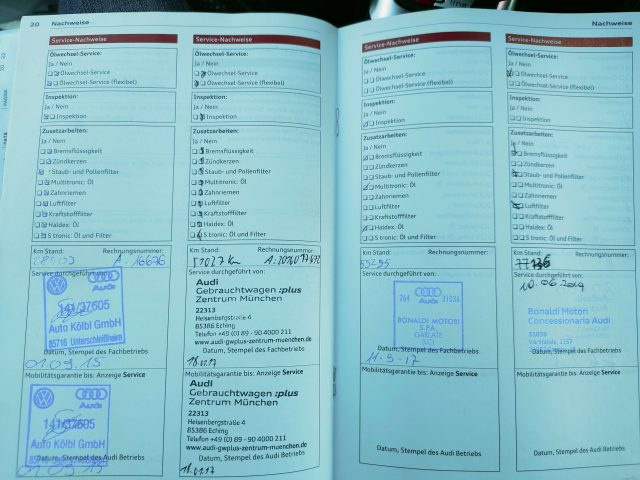 20 Nachweise
Service-Nachweise
Ölwechsel-Service:
Ja / Nein
Ölwechsel-Service
Ölwechsel-Service (flexibel)
Inspektion:
Ja / Nein
Inspektion
Zusatzarbeiten:
Ja / Nein
Bremsflüssigkeit
Zündkerzen
Staub- und Pollenfilter
Multitronic: Öl
Zahnriemen
Luftfilter
Kraftstofffilter
Haldex: Öl
S tronic: Öl und Filter
Km Stand: Rechnungsnummer:
A. 16676
Service durchgeführt von:
Audi
141/37605
Auto Kölbl GmbH
85716 Unterschleißheim
Datum, Stempel des Fachbetriebs
01.09.15
Mobilitätsgarantie bis: Anzeige Service
Audi
141/37605
Auto Kölbl GmbH
Datum, Stempel des Audi Betriebs
Service-Nachweise
Ölwechsel-Service:
Ja / Nein
Ölwechsel-Service
Ölwechsel-Service (flexibel)
Inspektion:
Ja / Nein
Inspektion
Zusatzarbeiten:
Ja / Nein
Bremsflüssigkeit
Zündkerzen
Staub- und Pollenfilter
Multitronic: Öl
Zahnriemen
Luftfilter
Kraftstofffilter
Haldex: Öl
S tronic: Öl und Filter
Km Stand: Rechnungsnummer:
Service durchgeführt von:
Audi
Gebrauchtwagen :plus
Zentrum München
22313
Heisenbergstraße 4
85386 Eching
Telefon +49 (0) 89 - 90 4000 211
www.audi-gwplus-zentrum-muenchen.de
Datum, Stempel des Fachbetriebs
18.01.17
Mobilitätsgarantie bis: Anzeige Service
Audi
Gebrauchtwagen :plus
Zentrum München
22313
Heisenbergstraße 4
85386 Eching
Telefon +49 (0) 89 - 90 4000 211
www.audi-gwplus-zentrum-muenchen.de
Datum, Stempel des Audi Betriebs
18.01.17
Nachweise
Service-Nachweise
Ölwechsel-Service:
Ja / Nein
Ölwechsel-Service
Ölwechsel-Service (flexibel)
Inspektion:
Ja / Nein
Inspektion
Zusatzarbeiten:
Ja / Nein
Bremsflüssigkeit
Zündkerzen
Staub- und Pollenfilter
Multitronic: Öl
Zahnriemen
Luftfilter
Kraftstofffilter
Haldex: Öl
S tronic: Öl und Filter
Km Stand: Rechnungsnummer:
55295
Service durchgeführt von:
264 Audi 31036
BONALDI MOTORI
S.P.A.
GARLATE
(LC)
Datum, Stempel des Fachbetriebs
11-9-17
Mobilitätsgarantie bis: Anzeige Service
Datum, Stempel des Audi Betriebs
Service-Nachweise
Ölwechsel-Service:
Ja / Nein
Ölwechsel-Service
Ölwechsel-Service (flexibel)
Inspektion:
Ja / Nein
Inspektion
Zusatzarbeiten:
Ja / Nein
Bremsflüssigkeit
Zündkerzen
Staub- und Pollenfilter
Multitronic: Öl
Zahnriemen
Luftfilter
Kraftstofffilter
Haldex: Öl
S tronic: Öl und Filter
Km Stand: Rechnungsnummer:
Service durchgeführt von:
10.06.2019
Bonaldi Motori
Concessionaria Audi
Via Statale, 1157
Datum, Stempel des Fachbetriebs
Mobilitätsgarantie bis: Anzeige Service
Datum, Stempel des Audi Betriebs